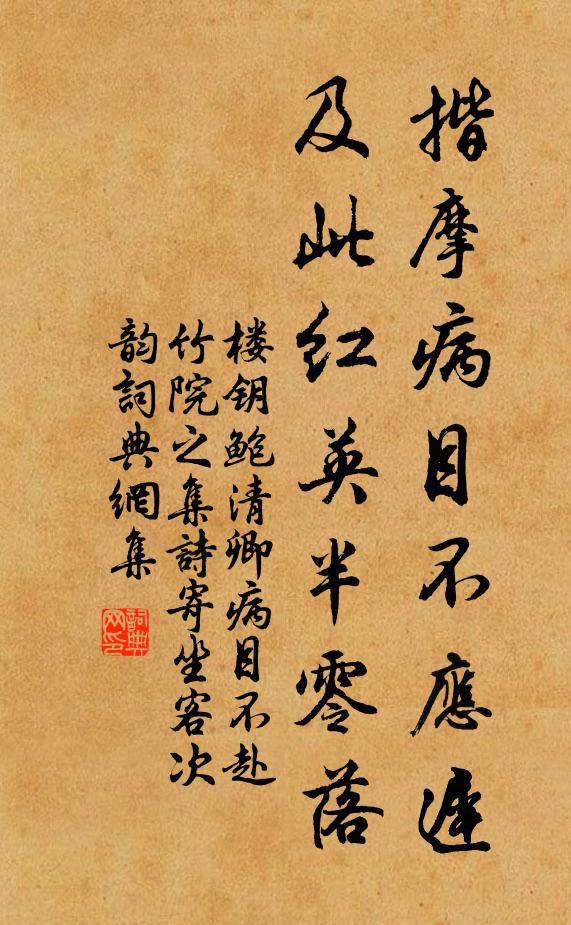 揩摩病目不應遲
及此红英半零落
楼钥鲍清卿病目不赴
竹院之集詩寄坐客次
韵詞典網集
詞典
网印